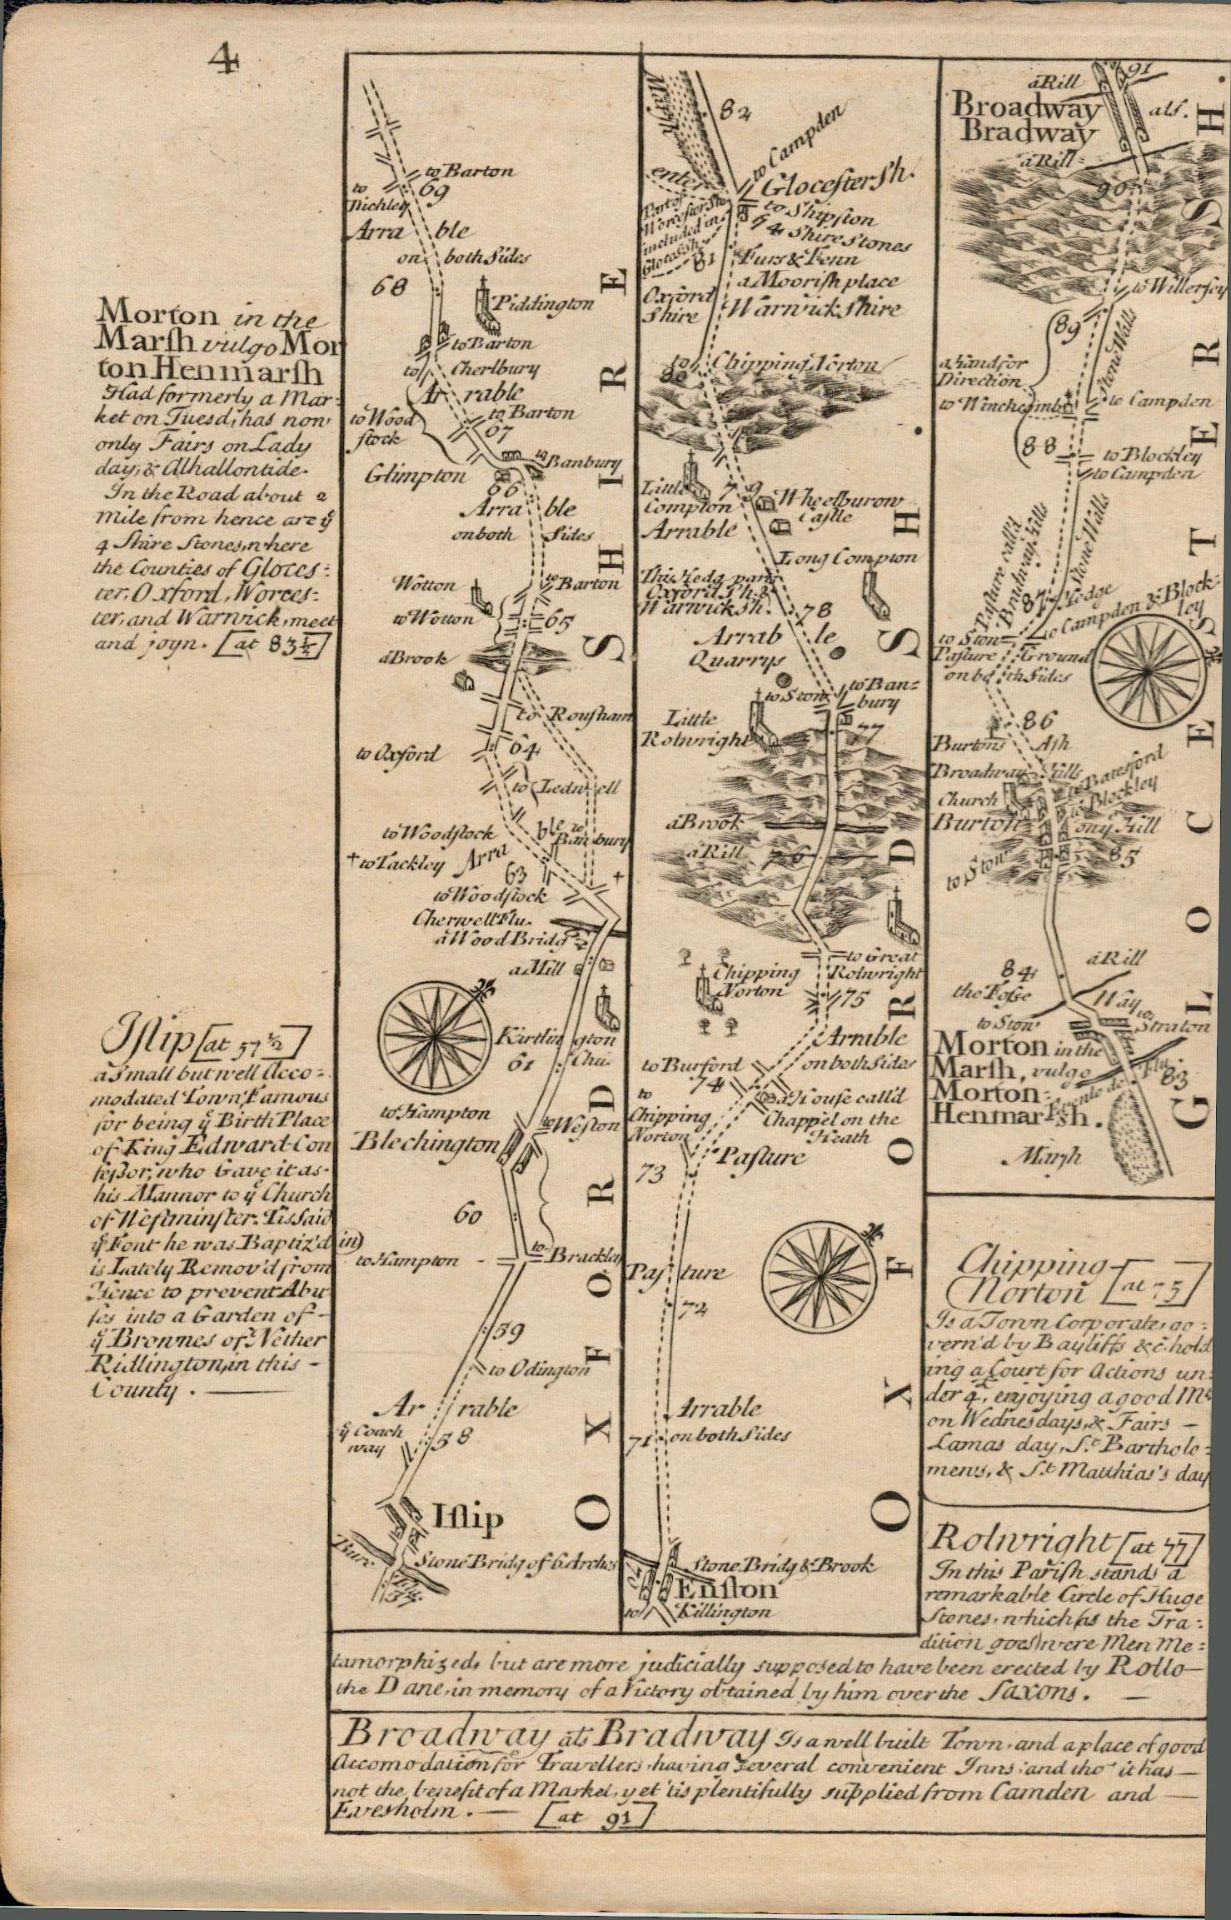 4
Morton in the
Marſh vulgo Mor
ton Henmarsh
Had formerly a Mar-
ket on Tuesd; has now
only Fairs on Lady
day, & Alhallontide.
In the Road about a
Mile from hence are yͤ
4 Shire Stones, where
the Counties of Gloces:
ter, Oxford, Worces:
ter, and Warwick, meet
and joyn. [at 83½]
Iſlip [at 57½]
a Small but well Acco=
modated Town Famous
for being yͤ Birth Place
of King Edward Con
feſsor, who Gave it as-
his Mannor to yͤ Church
of Weſtminſter. Tis Said
yͤ Font he was Baptiz'd in)
is Lately Remov'd from
Hence to prevent Abu
ſes into a Garden of -
yͤ Brownes of Nether
Ridlington, in this -
County.
to Barton
69
to
Ditchley
Arra ble
on both Sides
68
Piddington
to Barton
to Cherlbury
Ar rable
to Barton
to Wood
ſtock
67
to Banbury
Glimpton
66
Arra ble
on both Sides
Wotton
to Barton
to Wotton
65
a Brook
to Rouſham
to Oxford
64
to Ledwell
to Woodſtock
Arra ble
to Banbury
† to Tackley
63
†
to Woodſtock
Cherwell Flu.
a Wood Bridg
62
a Mill
Kirtlington
Chu.
61
to Hampton
to Weſton
Blechington
60
to Hampton
to Brackley
59
to Odington
Ar rable
yͤ Coach
way
58
Iſlip
Stone Bridg of 6 Arches
Flu.
57
OXFORD SHIRE
Marſh
82
to Campden
enter
Gloceſterſh.
Part of
Worceſterſh
included in
Gloceſsh.
to Shipſton
4 Shire Stones
81
Furs & Fenn
a Moorish place
Oxford
Shire
Warwick Shire
to Chipping Norton
80
Little
Compton
79
Wheelburow
Caſtle
Arrable
Long Compton
This Hedg parts
Oxford Sh. &
Warwick sh.
78
Arrab le
Quarrys
to Stow
to Ban=
bury
Little
Rolwright
77
a Brook
a Rill
76
to Great
Rolwright
Chipping
Norton
75
Arrable
on both Sides
to Burford
74
a House call'd
Chappel on the
Heath
to
Chipping
Norton
73
Paſture
Paſ ture
72
Arrable
on both Sides
71
Stone Bridg & Brook
70
Enſton
to Killington
OXFORDSH
a Rill
91
Broadway
als.
Bradway
a Rill
90
to Willersey
89
a Hand for
Direction
Stone Walls
to Winchcomb
to Campden
88
to Blockley
to Campden
Paſture call'd
Bradway Hills
Stone Walls
87
Hedge
to Campden & Block=
ley
to Stow
Paſture Ground
on both Sides
86
Burtons Ash
Broadway Hills
to Batesford
to Blockley
Church
Burton
on yͤ Hill
to Stow
85
a Rill
84
the Foſse
Way
to Stow
to Straton
Morton in the
Marſh, vulgo
Morton=
Henmarsh.
Evenlode Flu.
83
Marsh
GLOCESTERSH.
Chipping
Norton [at 75]
Is a Town Corporate, go=
vern'd by Bayliffs &c. hold
ing a Court for Actions un:
der 4ᴸ, enjoying a good Mᵗ
on Wednesdays, & Fairs -
Lamas day, Sᵗ Bartholo=
mews, & Sᵗ Matthias's day
Rolwright [at 77]
In this Pariſh stands a
remarkable Circle of Huge
Stones, which (as the Tra=
dition goes) were Men Me=
tamorphized, but are more judicially supposed to have been erected by Rollo
the Dane, in memory of a Victory obtained by him over the Saxons.
Broadway als Bradway Is a well built Town, and a place of good
Accomodation for Travellers, having several convenient Inns, and tho' it has
not the benefit of a Market, yet 'tis plentifully supplied from Camden and
Evesholm. [at 91]